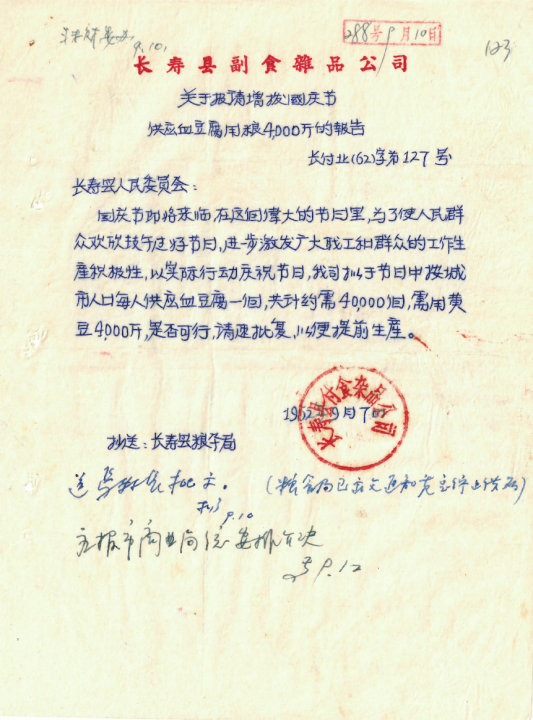 288号9月10日
123
9.10.
长寿县副食雜品公司
关于报請增拨國庆节
供应血豆腐用粮4,000斤的報告
长付业(62)字第127号
长寿县人民委员会：
国庆节即将来临，在这個偉大的节日里，为了使人民群
众欢欣鼓午过好节日，进步激发广大职工和群众的工作生
產积极性，以实际行动庆祝节日，我司拟于节日中按城
市人口每人供应血豆腐一個，共计約需40,000個，需用黄
豆4,000斤，是否可行，請速批复，以便提前生產。
长寿县付食杂品公司
1962年9月7日
抄送：长寿县粮食局
9.10
9.12